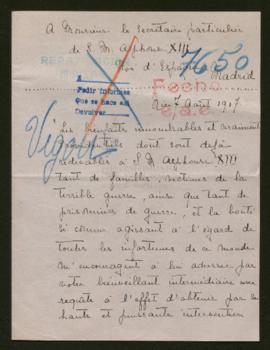 A Monsieur le Secrétaire particulier
de S. M. Alphonse XIII
Roi d'Espagne
Madrid
7650
A
Pedir informes
Que se hace así
Devolver
Fecho
7 Août 1917
Les bienfaits innombrables et vraiment
providentiels dont sont déjà
redevables à S. M. Alphonse XIII
tant de familles, victimes de la
terrible guerre, ainsi que tant de
prisonniers de guerre, et la bonté
si connue agissant à l'égard de
toutes les infortunes de ce monde
m'encouragent à lui adresser par
votre bienveillant intermédiaire une
requête à l'effet d'obtenir par sa
haute et puissante intervention